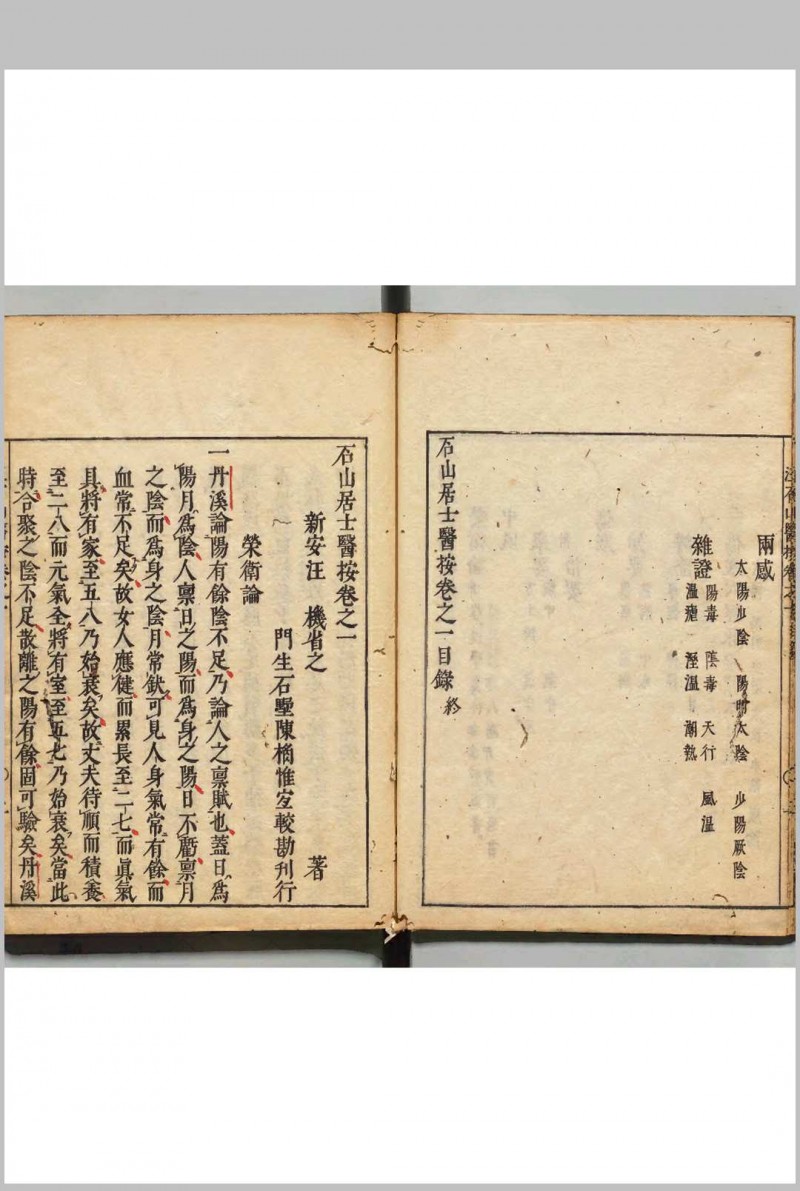 兩感
太陽少陰 陽明太陰 少陽厥陰
雜證
陽毒 陰毒 天行 風溫
溫瘧 溼溫 潮熱
石山居士醫按卷之一目錄終
石山居士醫按卷之一
新安汪 機省之 著
門生石墅陳桷惟宜較勘刊行
榮衛論
一丹溪論陽有餘陰不足乃論人之稟賦也蓋日為
陽月為陰人稟日之陽而為身之陽日不虧稟月
之陰而為身之陰月常缺可見人身氣常有餘而
血常不足矣故女人應健而累長至二七而眞氣
具將有家至五八乃始衰矣故丈夫待順而積養
至二八而元氣全將有室至五七乃始衰矣當此
時合聚之陰不足故離之陽有餘固可驗矣丹溪